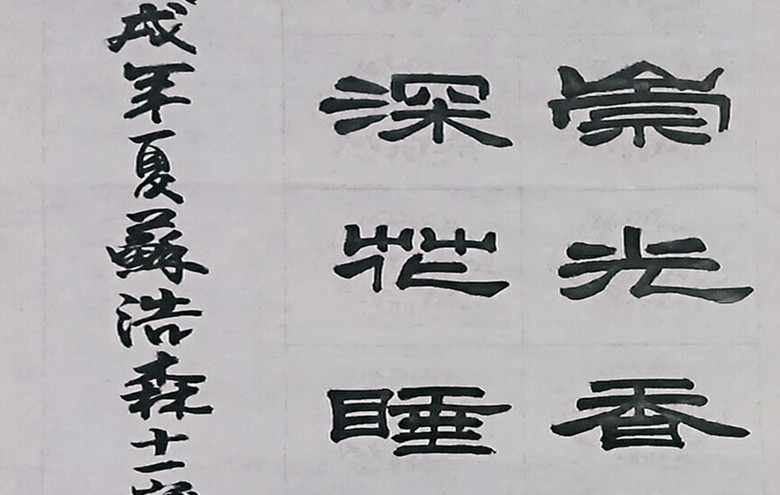 崇光香
深花睡
戌年夏蘇浩森十一